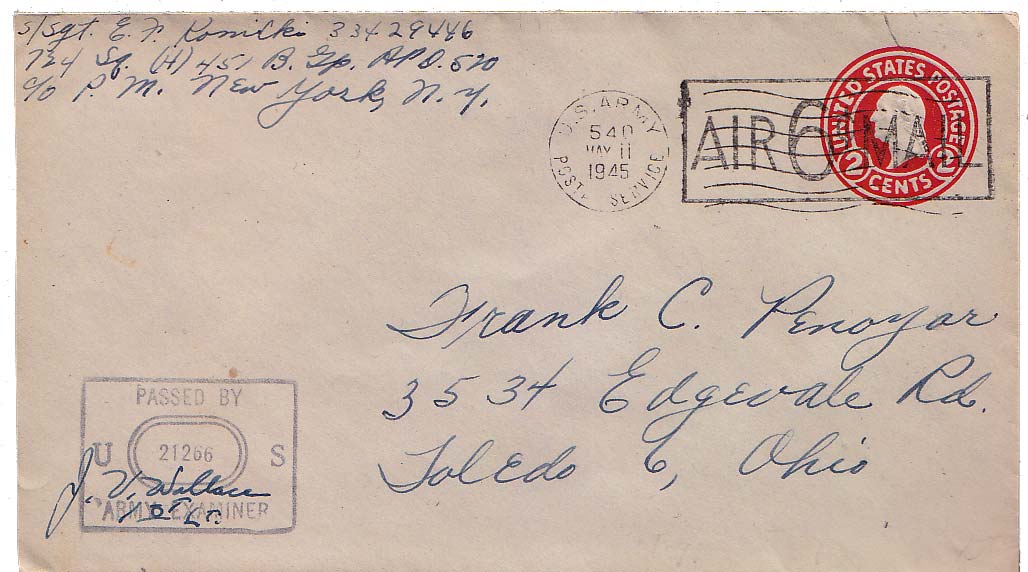 S/Sgt. E. F. Konicki 33429446
724 Sq. (H) 451 B. Gp. APO. 520
c/o P. M. New York, N. Y.
U.S. ARMY
540
MAY 11
1945
POSTAL SERVICE
AIR 6¢ MAIL
UNITED STATES POSTAGE
2 CENTS 2
Frank C. Penoyar
3534 Edgevale Rd.
Toledo 6, Ohio
PASSED BY
U 21266 S
J. V. Wallace
ARMY EXAMINER